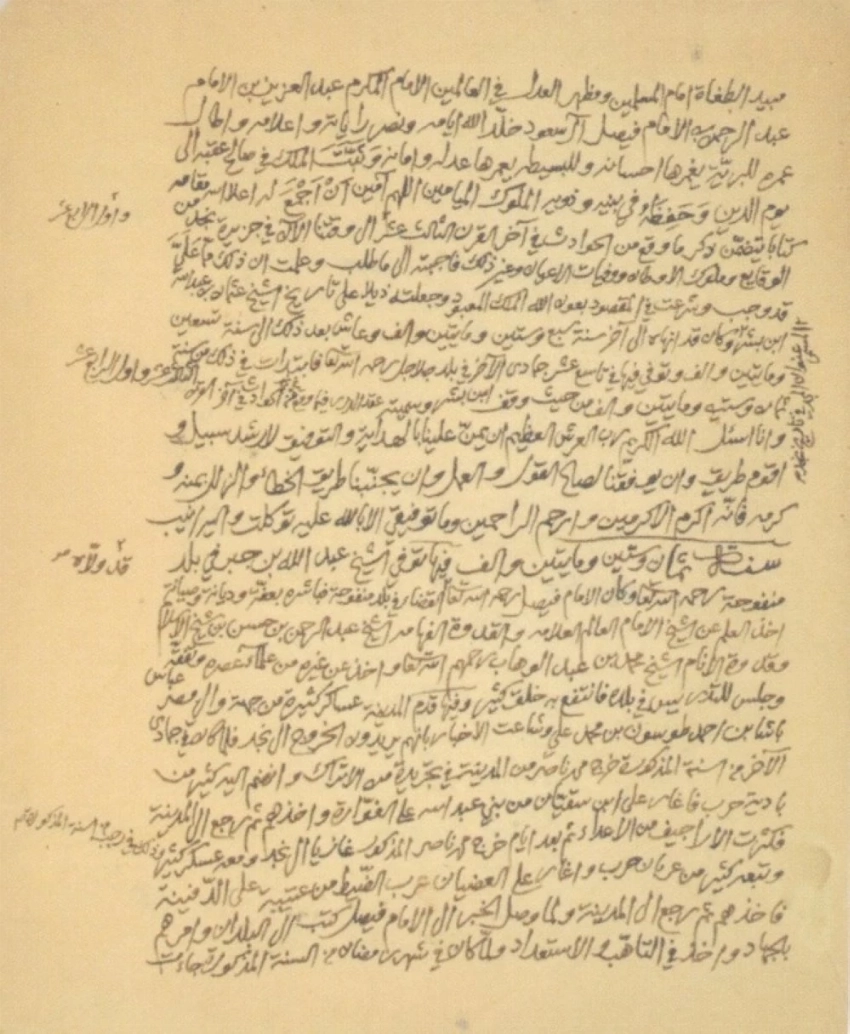 مبيد الطغاة امام المسلمين ومظهر العدل في العالمين الامام المكرم عبد العزيز بن الامام
عبد الرحمن بن الامام فيصل آل سعود خلد الله ايامه ونصر راياته واعلامه واطال
عمره للبريّة يغمرها احسانه وللبسيطة يعمرها عدله وامانه وَثَبَّتَ الملك في صالح عقبه الى
يوم الدين وَحَفِظَهُ في بنيه وذويه الملوك الميامين اللهم آمين اَنْ اَجْمَعَ له اعلا الله مقامه
كتابا يتضمّن ذكر ما وقع من الحوادث في آخر القرن الثالث عشر الى وقتنا الآن في جزيرة نجد من
واول الرابع عشر
الوقايع وملوك الاوطان ووفيات الاعيان وغير ذلك فاجبته الى ما طلب وعلمت ان ذلك مما عَلَيَّ
قد وجب وشرعت في المقصود بعون الله الملك المعبود وجعلته ذيلا على تاريخ الشيخ عثمان بن عبد الله
ابن بشر وكان قد انهاه الى آخر سنة سبع وستين ومايتين والف وعاش بعد ذلك الى سنة تسعين
المسمى عنوان المجد في تاريخ نجد
ومايتين والف وتوفي فيها في تاسع عشر جمادى الآخر في بلد جلاجل رحمه الله تعالى فابتدأت في ذلك من سنة
ثمان وستين ومايتين والف من حيث وقف ابن بشر وسميته عقد الدرر فيما وقع في نجد من الحوادث في آخر القرن
الثالث عشر واول الرابع عشر
وانا اسئل الله الكريم رب العرش العظيم ان يمنّ علينا بالهداية والتوفيق لارشد سبيل و
اقوم طريق وان يوفقنا لصالح القول والعمل وان يجنّبنا طريق الخطاء والزلل بمنه و
كرمه فانّه اكرم الاكرمين وارحم الراحمين وما توفيقي الا بالله عليه توكلت واليه انيب
سنة ١٢٦٨ ثمان وستين ومايتين والف فيها توفي الشيخ عبد الله بن جبر في بلد
منفوحة رحمه الله تعالى وكان الامام فيصل رحمه الله تعالى قد ولّاه القضاء في بلد منفوحة فباشره بعفّة وديانة وصيانة
اخذ العلم عن الشيخ الامام العالم العلامه والقدوة الفهامه الشيخ عبد الرحمن بن حسن بن شيخ الاسلام
وقدوة الانام الشيخ محمد بن عبد الوهاب رحمهم الله تعالى واخذ عن غيره من علماء عصره وتفقّه
وجلس للتدريس في بلده فانتفع به خلق كثير وفيها قدم المدينة عساكر كثيرة من جهة والي مصر عباس
باشا بن احمد طوسون بن محمد علي وشاعت الأخبار بانهم يريدون الخروج الى نجد فلما كان في جمادى
الآخر من السنة المذكورة خرج ابن ناصر من المدينة في تجريدة من الاتراك وانضم اليه كثير من
بادية حرب فاغار على ابن سقيان من بني عبد الله على الفوّارة واخذهم ثم رجع الى المدينة
وذلك في رجب من السنة المذكورة
فكثرت الأراجيف من الأعداء ثم بعد ايام خرج ابن ناصر المذكور غازيا الى نجد ومعه عسكر كثير
وتبعه كثير من عربان حرب واغار على العضيان عرب الضّيط من عتيبة على الدّفينة
فاخذهم ثم رجع الى المدينة ولما وصل الخبر الى الامام فيصل كتب الى البلدان وامرهم
بالجهاد واخذ في التاهّب والاستعداد ولمّا كان في شهر رمضان من السنة المذكورة جاءت